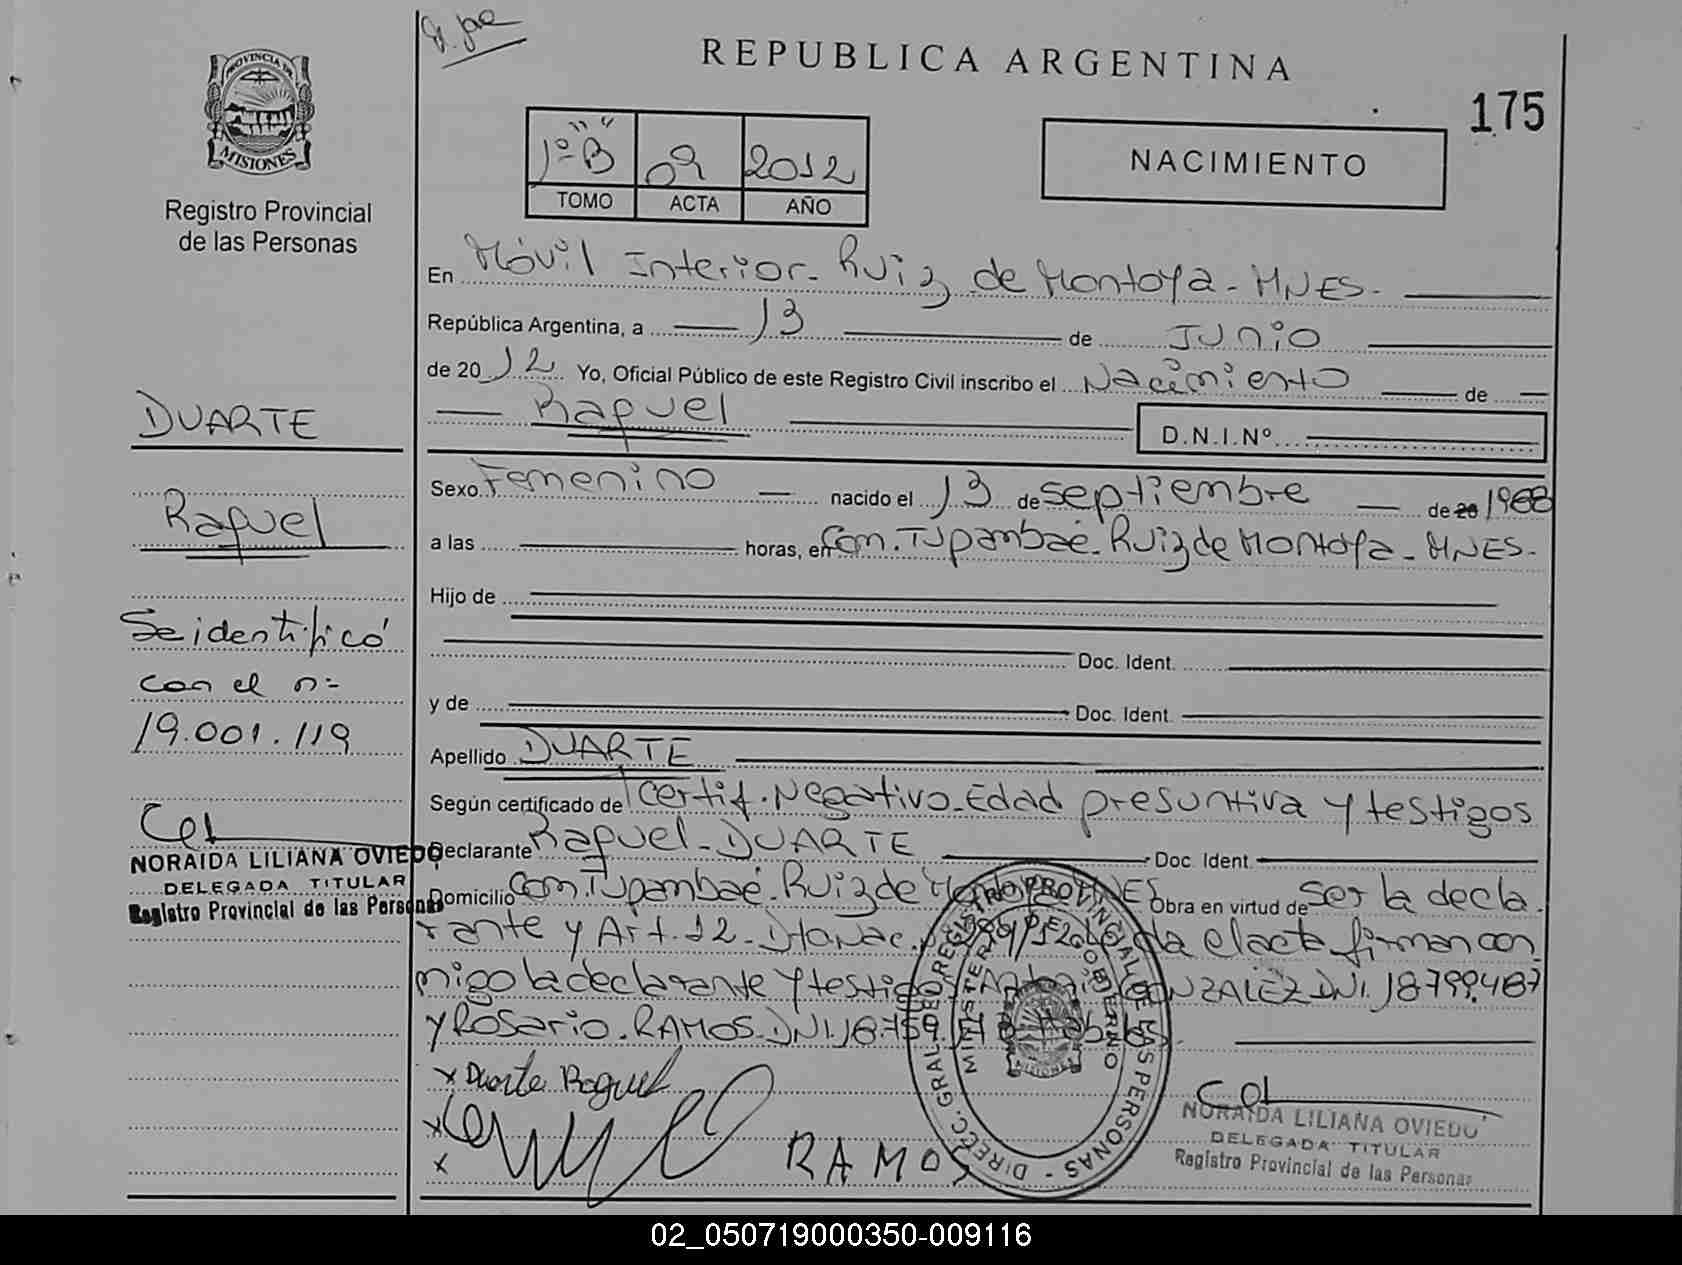 REPUBLICA ARGENTINA
175
PROVINCIA DE
MISIONES
Registro Provincial
de las Personas
1º "B" 09 2012
TOMO ACTA AÑO
NACIMIENTO
En Móvil Interior - Ruiz de Montoya - MNES -
República Argentina, a 13 de Junio
de 2012 Yo, Oficial Público de este Registro Civil inscribo el Nacimiento de
Raquel
D.N.I.Nº
Sexo Femenino nacido el 13 de septiembre de 20 1968
a las horas, en Com. Tupambaé - Ruiz de Montoya - MNES -
Hijo de
Doc. Ident.
y de Doc. Ident.
Apellido DUARTE
Según certificado de Certif. Negativo - Edad presuntiva y testigos
Declarante Raquel - DUARTE Doc. Ident.
Domicilio Com. Tupambaé - Ruiz de Montoya MNES Obra en virtud de ser la decla
rante y Art. 12 - acta firman con
migo la declarante y testigos GONZALEZ DNI. 18799.487
y Rosario - RAMOS - DNI. 18759
x Duarte Raquel
x
x
RAMOS
DIREC. GRAL. DE REGISTRO PROVINCIAL DE LAS PERSONAS
MINISTERIO DE GOBIERNO
MISIONES
NORAIDA LILIANA OVIEDO
DELEGADA TITULAR
Registro Provincial de las Personas
DUARTE
Raquel
Se identificó
con el nº
19.001.119
NORAIDA LILIANA OVIEDO
DELEGADA TITULAR
Registro Provincial de las Personas
02_050719000350-009116